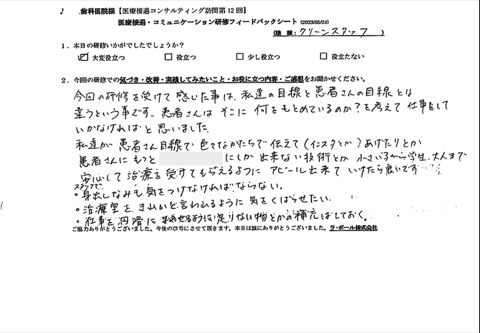 歯科医院様【医療接遇コンサルティング訪問第12回】
医療接遇・コミュニケーション研修フィードバックシート(2023/05/18)
(職種:クリーンスタッフ)
1.本日の研修いかがでしたでしょうか?
☑大変役立つ □役立つ □少し役立つ □役立たない
2.今回の研修での気づき・改善・実践してみたいこと・お役に立つ内容・ご感想をお聞かせください。
今回の研修を受けて感じた事は、私達の目線と患者さんの目線とは
違うという事です。患者さんは そこに 何をもとめているのか?を考えて仕事をして
いかなければと思いました。
私達が 患者さん目線で 色々なかたちで伝えて(インスタとか)あげたりとか
患者さんに もっと にしか出来ない技術とか 小さい子から学生、大人まで
安心して 治療を 受けてもらえるように アピール出来て いけたら良いです
スタッフで
・身出しなみも気をつけなければならない。
・治療室を、きれいと言われるように 気をくばらせたい。
・仕事を円滑に 足りない物とかを補充はしておく。
ご協力ありがとうございました。今後の参考にさせて頂きます。本日は誠にありがとうございました。ラ・ポール株式会社